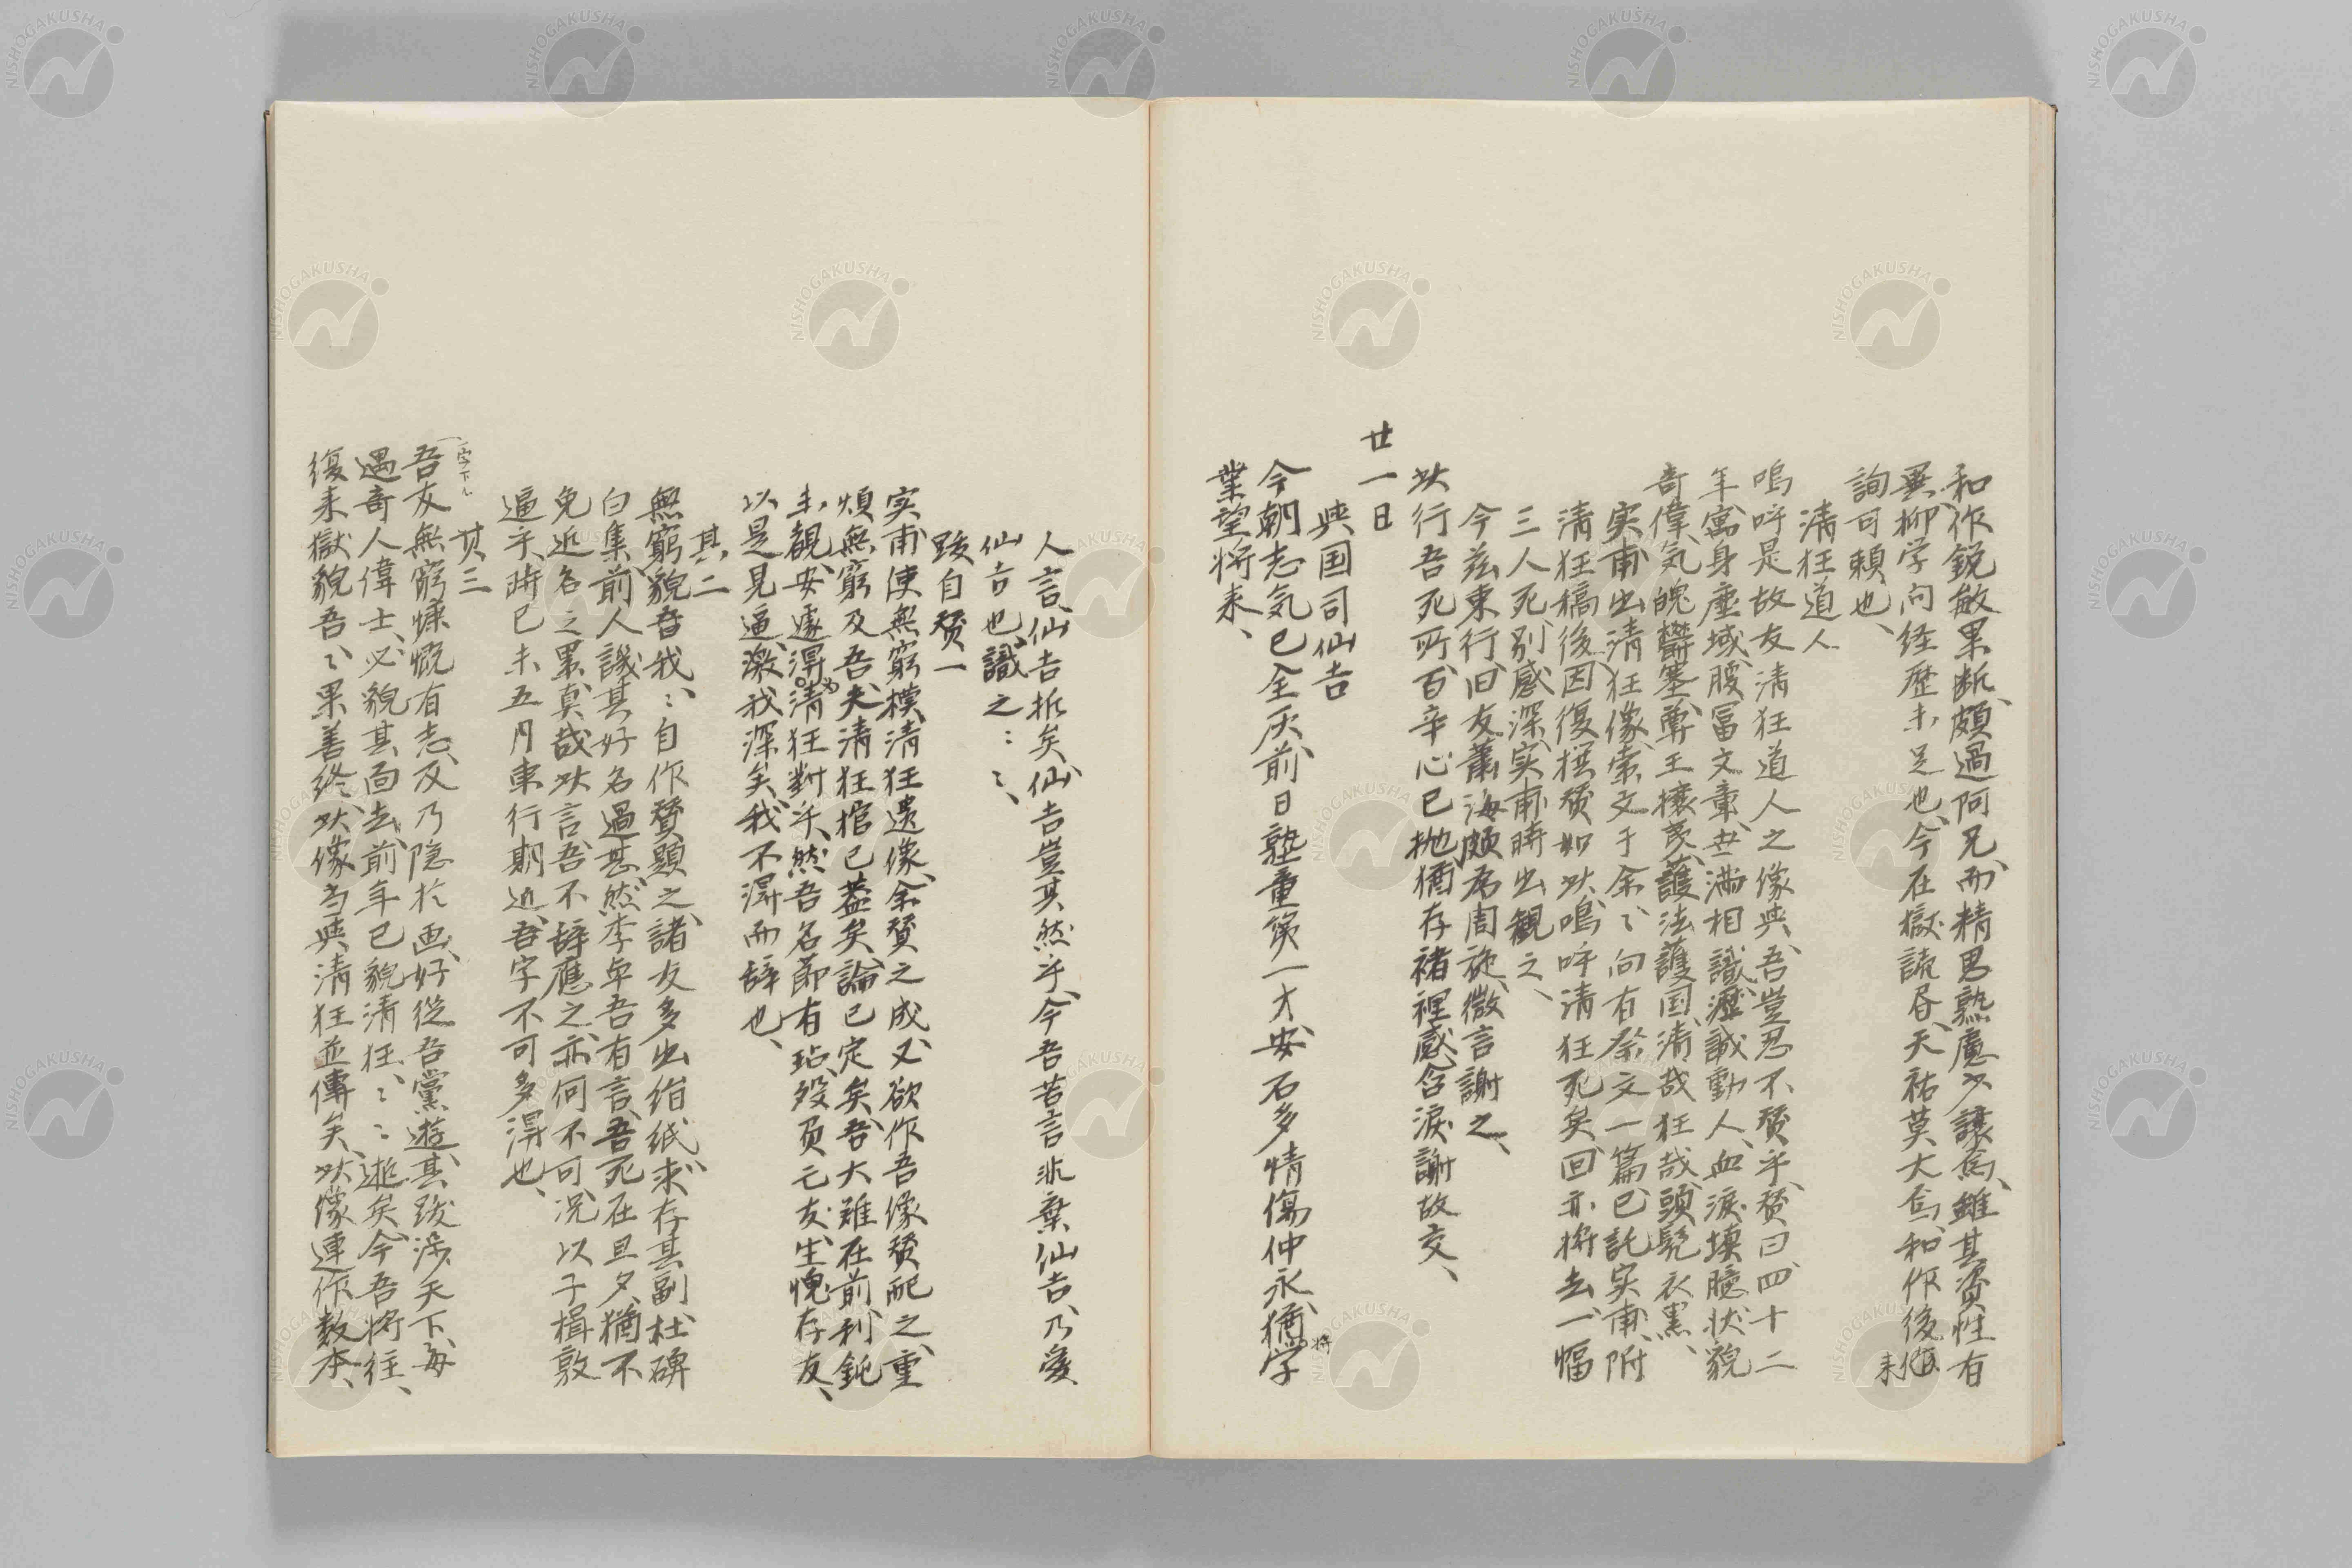 和作鋭敏果断、頗過阿兄、而精思熟慮少讓焉、雖其資性有
異、抑学问経歴未足也、今在獄読書、天祐莫大焉、和作後来
詢可頼也、
清狂道人
嗚呼是故友清狂道人之像与、吾豈忍不賛乎、賛曰、四十二
年寓身塵域、腹冨文章、世満相識、瀝誠動人、血淚塡臆、状貌
奇偉、気魄欝塞、尊王攘夷、護法護国、清哉狂哉、頭髡衣黒、
実甫出清狂像、索文于余、余向有祭文一篇、已託実甫、附
清狂稿後、因復撰賛如此、嗚呼清狂死矣、回亦将去、一幅
三人死別感深、実甫時出観之、
今茲東行、旧友蕭海頗為周旋、微言謝之、
此行吾死所、百辛心已抛、猶存褚裡感、含淚謝故交、
廿一日
与国司仙吉
今朝志気已全灰、前日塾童僕一才、安石多情傷仲永、猶将学
業望将来、
人言仙吉折矣、仙吉豈其然乎、今吾苦言非棄仙吉、乃愛
仙吉也、識之ミミ、
跋自賛一
実甫使無窮摸清狂遺像、余賛之成、又欲作吾像賛配之、重
煩無窮及吾、夫清狂棺已蓋矣、論已定矣、吾大難在前、利鈍
未覩、安遽得与清狂対乎、然吾名節有玷、歿負亡友、生愧存友、
以是見逼、激我深矣、我不得而辞也、
其二
無窮貌吾、我ミ自作賛題之、諸友多出絹紙求存其副、杜碑
白集、前人譏其好名過甚、然李卓吾有言、吾死在旦夕、猶不
免近名之累、真哉此言、吾不辞應之、亦何不可、况以子楫敦
逼乎、時己未五月東行期近、吾字不可多得也、
其三
一字下ル
吾友無窮慷慨有志、及乃隠於画、好從吾黨遊、其跋涉天下、毎
遇奇人偉士、必貌其面去、前年已貌清狂、ミミ逝矣、今吾将往、
復来獄貌吾、ミ果善終、此像当与清狂並傳矣、此像連作数本、